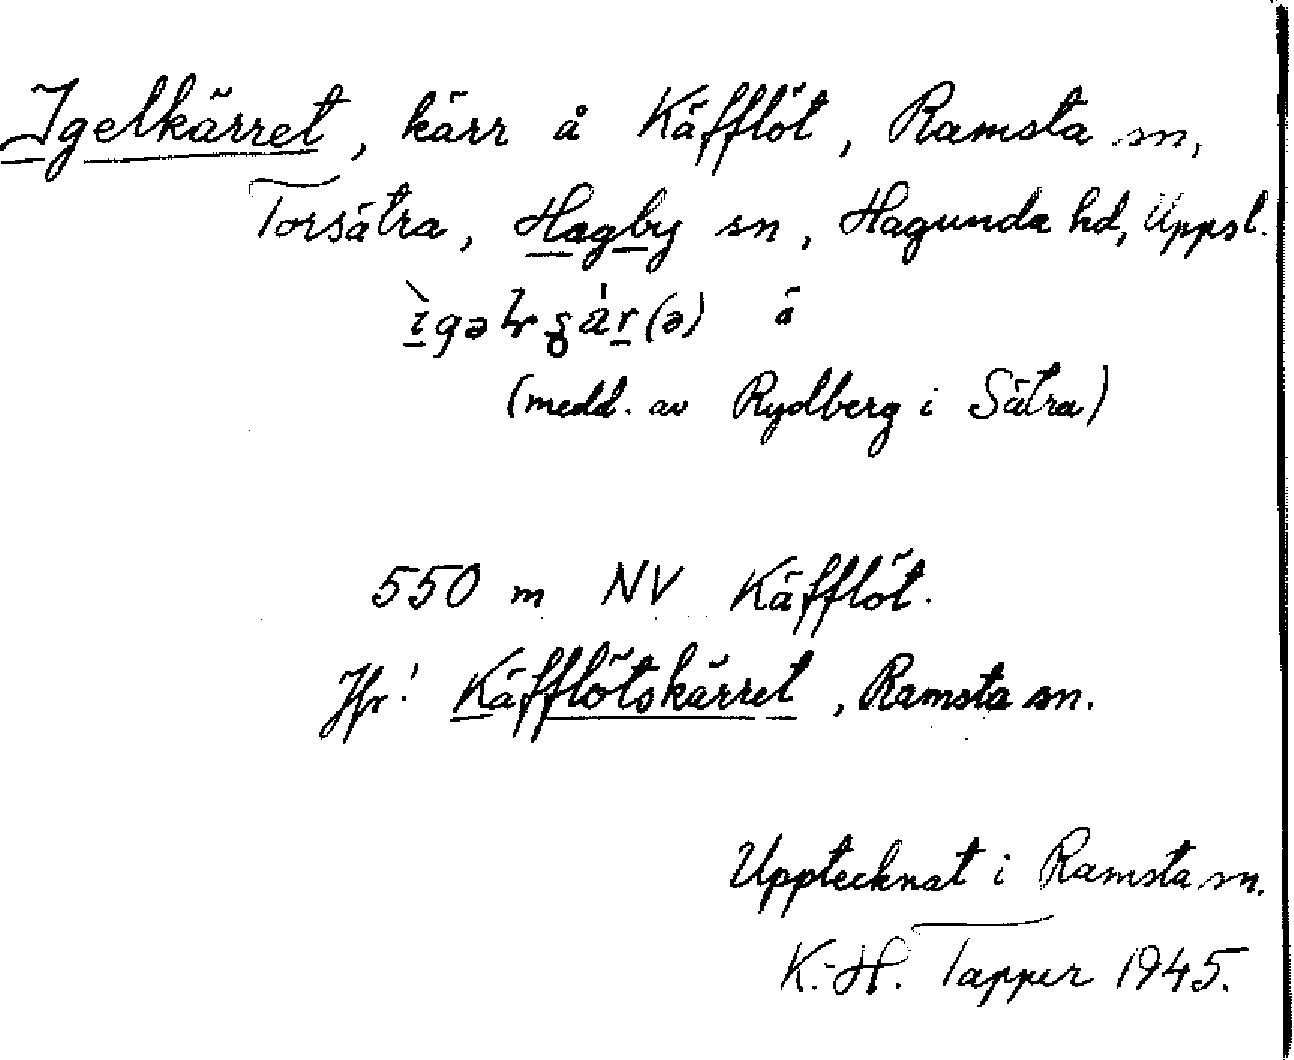 Igelkärret, kärr å Käfflöt, Ramsta sn,
Torsätra, Hagby sn, Hagunda hd, Uppsl.
(medd. av Rydberg i Sätra)
550 m NV Käfflöt.
Jfr! Käfflötskärret, Ramsta sn.
Upptecknat i Ramsta sn.
K.-H. Tapper 1945.